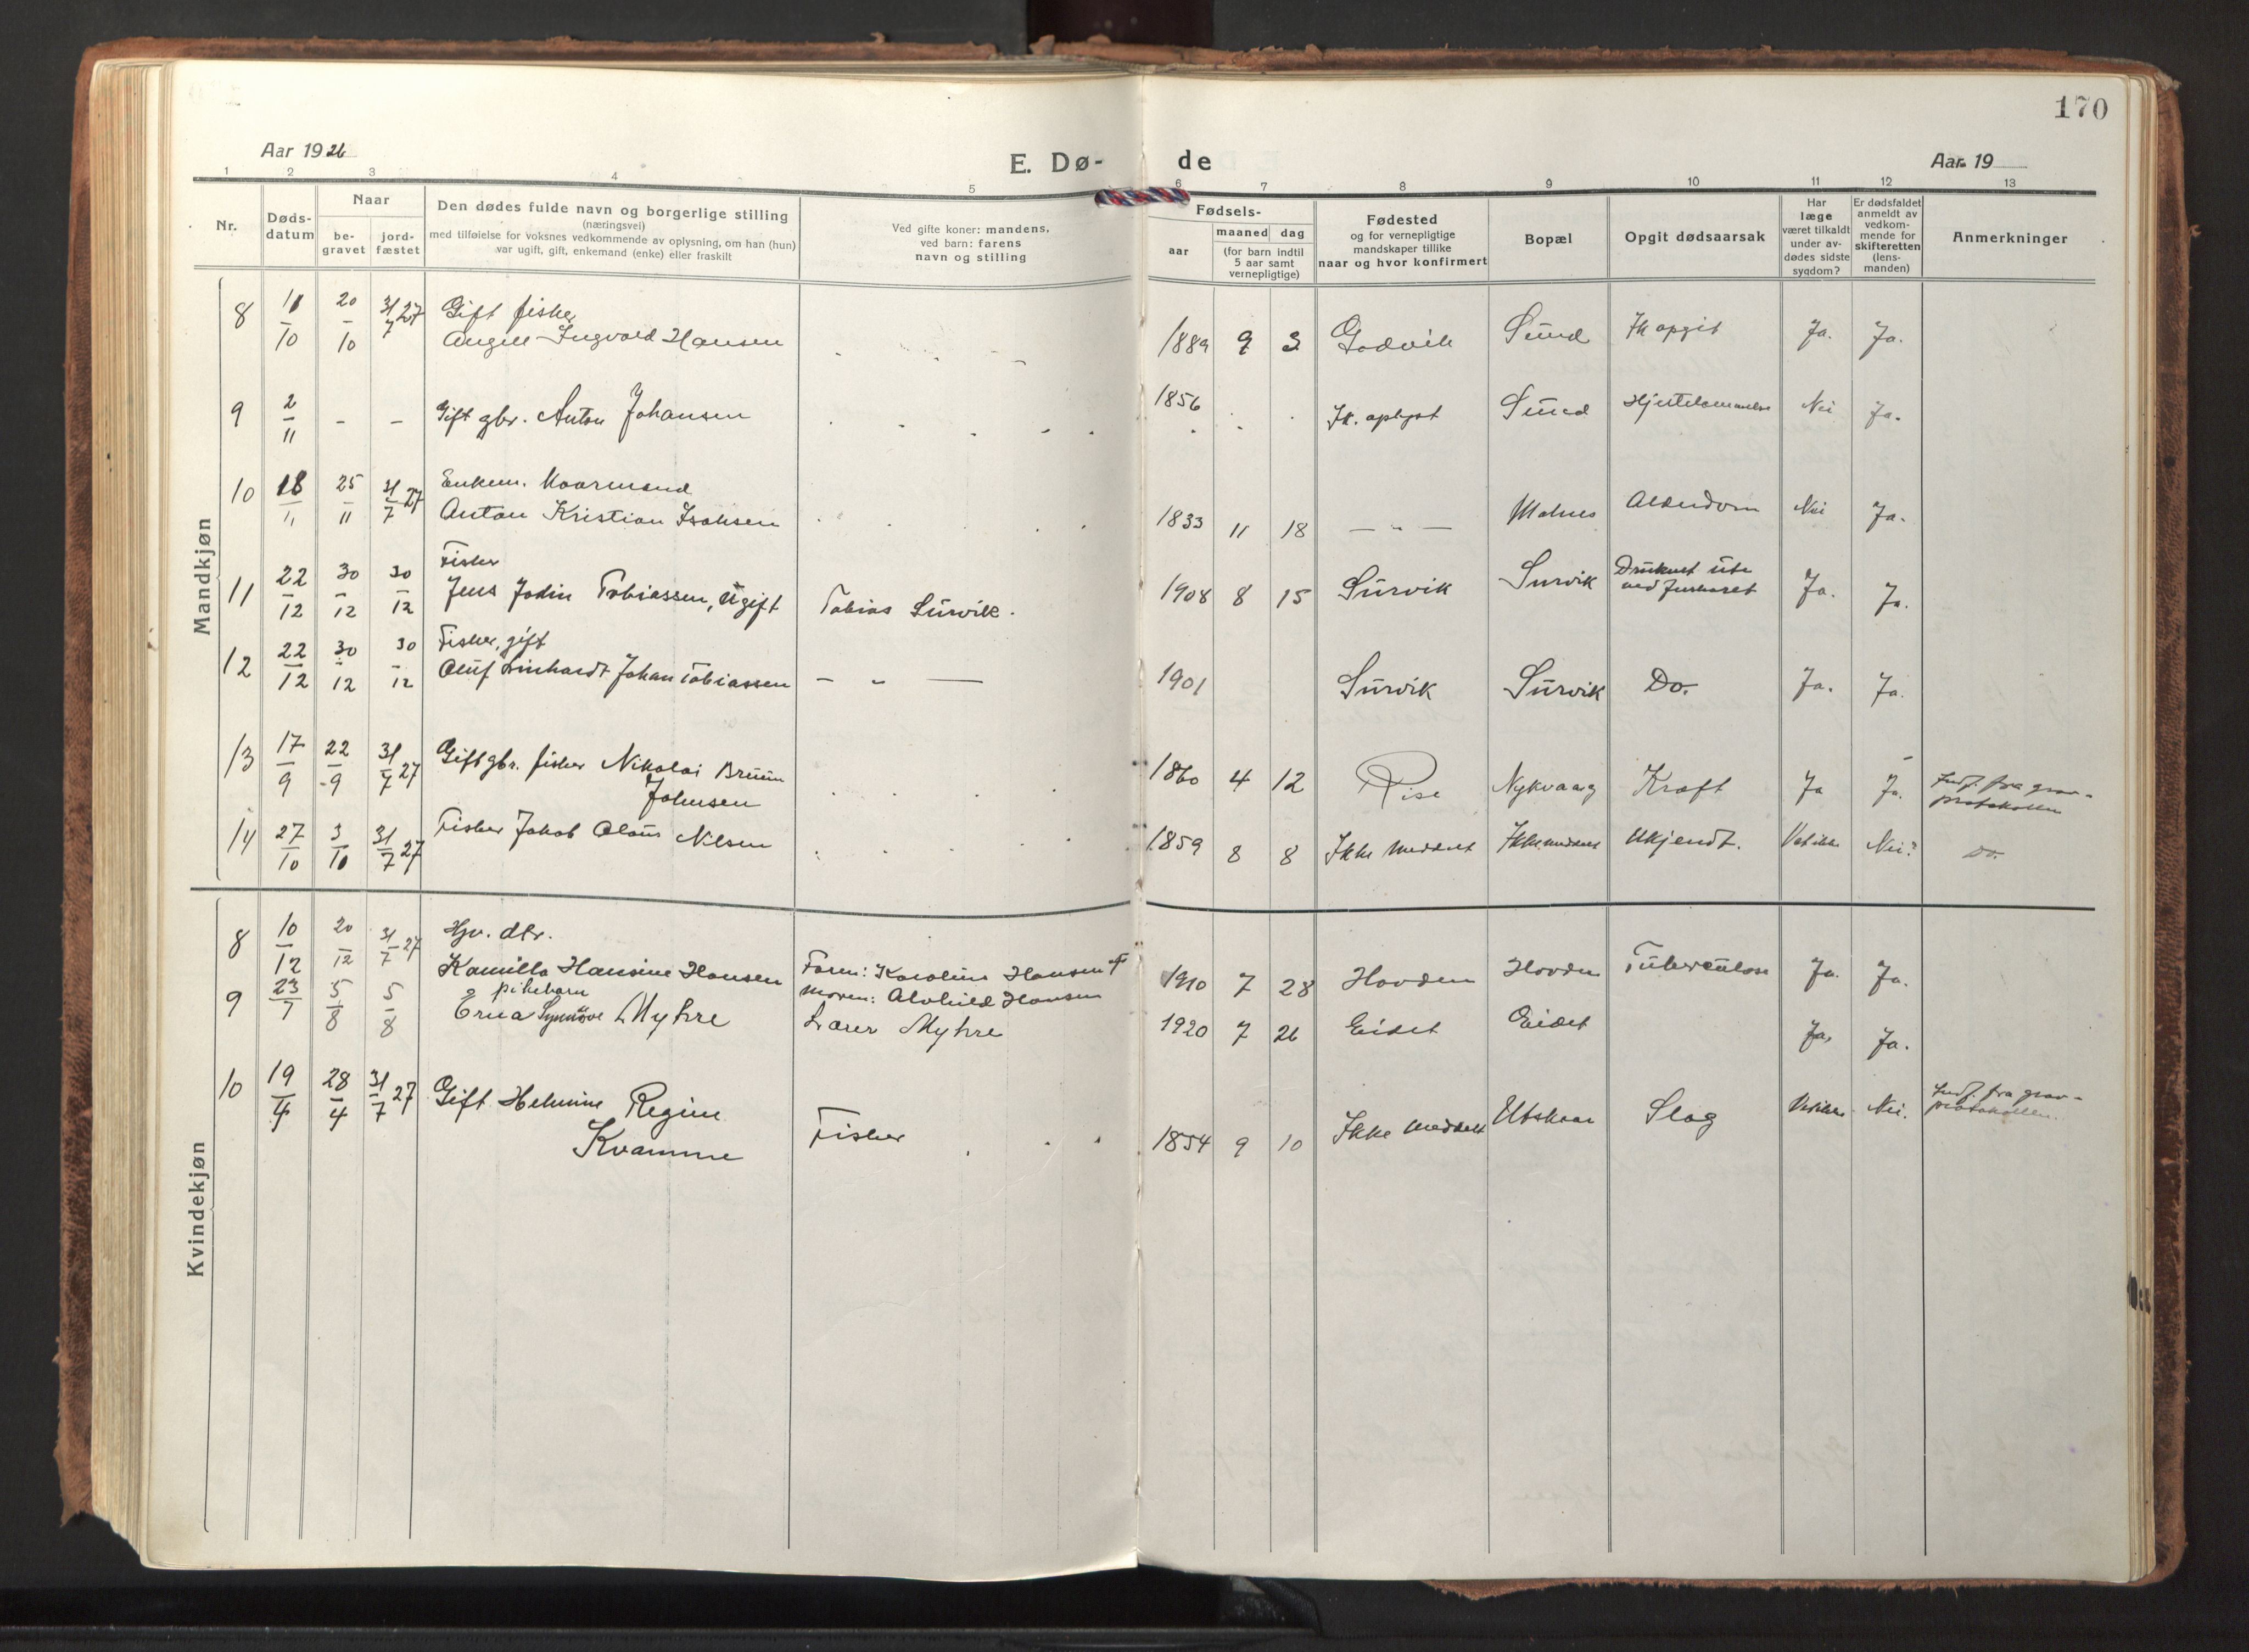 170
Aar 1926
E. Dø-
de
Aar 19
1 2 3 4 5 6 7 8 9 10 11 12 13
Nr.
Døds-
datum
Naar
be-
gravet
jord-
fæstet
Den dødes fulde navn og borgerlige stilling
(næringsvei)
med tilføielse for voksnes vedkommende av oplysning, om han (hun)
var ugift, gift, enkemand (enke) eller fraskilt
Ved gifte koner: mandens,
ved barn: farens
navn og stilling
Fødsels-
aar
maaned dag
(for barn indtil
5 aar samt
vernepligtige)
Fødested
og for vernepligtige
mandskaper tillike
naar og hvor konfirmert
Bopæl
Opgit dødsaarsak
Har
læge
været tilkaldt
under av-
dødes sidste
sygdom?
Er dødsfaldet
anmeldt av
vedkom-
mende for
skifteretten
(lens-
manden)
Anmerkninger
Mandkjøn
8 11/10 20/10 31/7 27 Gift fisker
Angell Ingvald Hansen 1889 9 3 Godvik Sund Ik opgit Ja. Ja.
9 2/11 - - Gift gbr. Anton Johansen 1856 Ik. oplyst Sund Nei Ja.
10 18/11 25/11 31/7 27 Enkem. Kaarmand
Anton Kristian Isaksen 1833 11 18 — " — Malnes Alderdom Nei Ja.
11 22/12 30/12 30/12 Fisker
Jens Jodin Tobiassen, ugift Tobias Survik. 1908 8 15 Survik Survik Druknet ute
ved Ja. Ja.
12 22/12 30/12 30/12 Fisker, gift
Oluf Linhardt Johan Tobiassen — " — 1901 Survik Survik Do. Ja. Ja.
13 17/9 22/9 31/7 27 Gift gbr. fisker Nikolai Bruun
Johnsen 1860 4 12 Rise Nykvaag Kræft Ja Ja. Indf. fra grav-
protokollen
14 27/10 3/10 31/7 27 Fisker Jakob Olaus Nilsen 1859 8 8 Ikke meddelt Ikke meddelt Ukjendt. Vet ikke Nei? Do.
Kvindekjøn
8 10/12 20/12 31/7 27 Hjv. dtr.
Kamilla Hansine Hansen Faren: Karolius Hansen †
Moren: Alvhild Hansen 1910 7 28 Hovden Hovden Tuberculose Ja. Ja.
9 23/7 5/8 5/8 pikebarn
Erna Synnöve Myhre Lærer Myhre 1920 7 26 Eidet Eidet Ja, Ja.
10 19/4 28/4 31/7 27 Gift Helmine Regine
Kvamme Fisker 1854 9 10 Ikke meddelt Utskaar Slag Vet ikke Nei. Indf. fra grav-
protokollen.